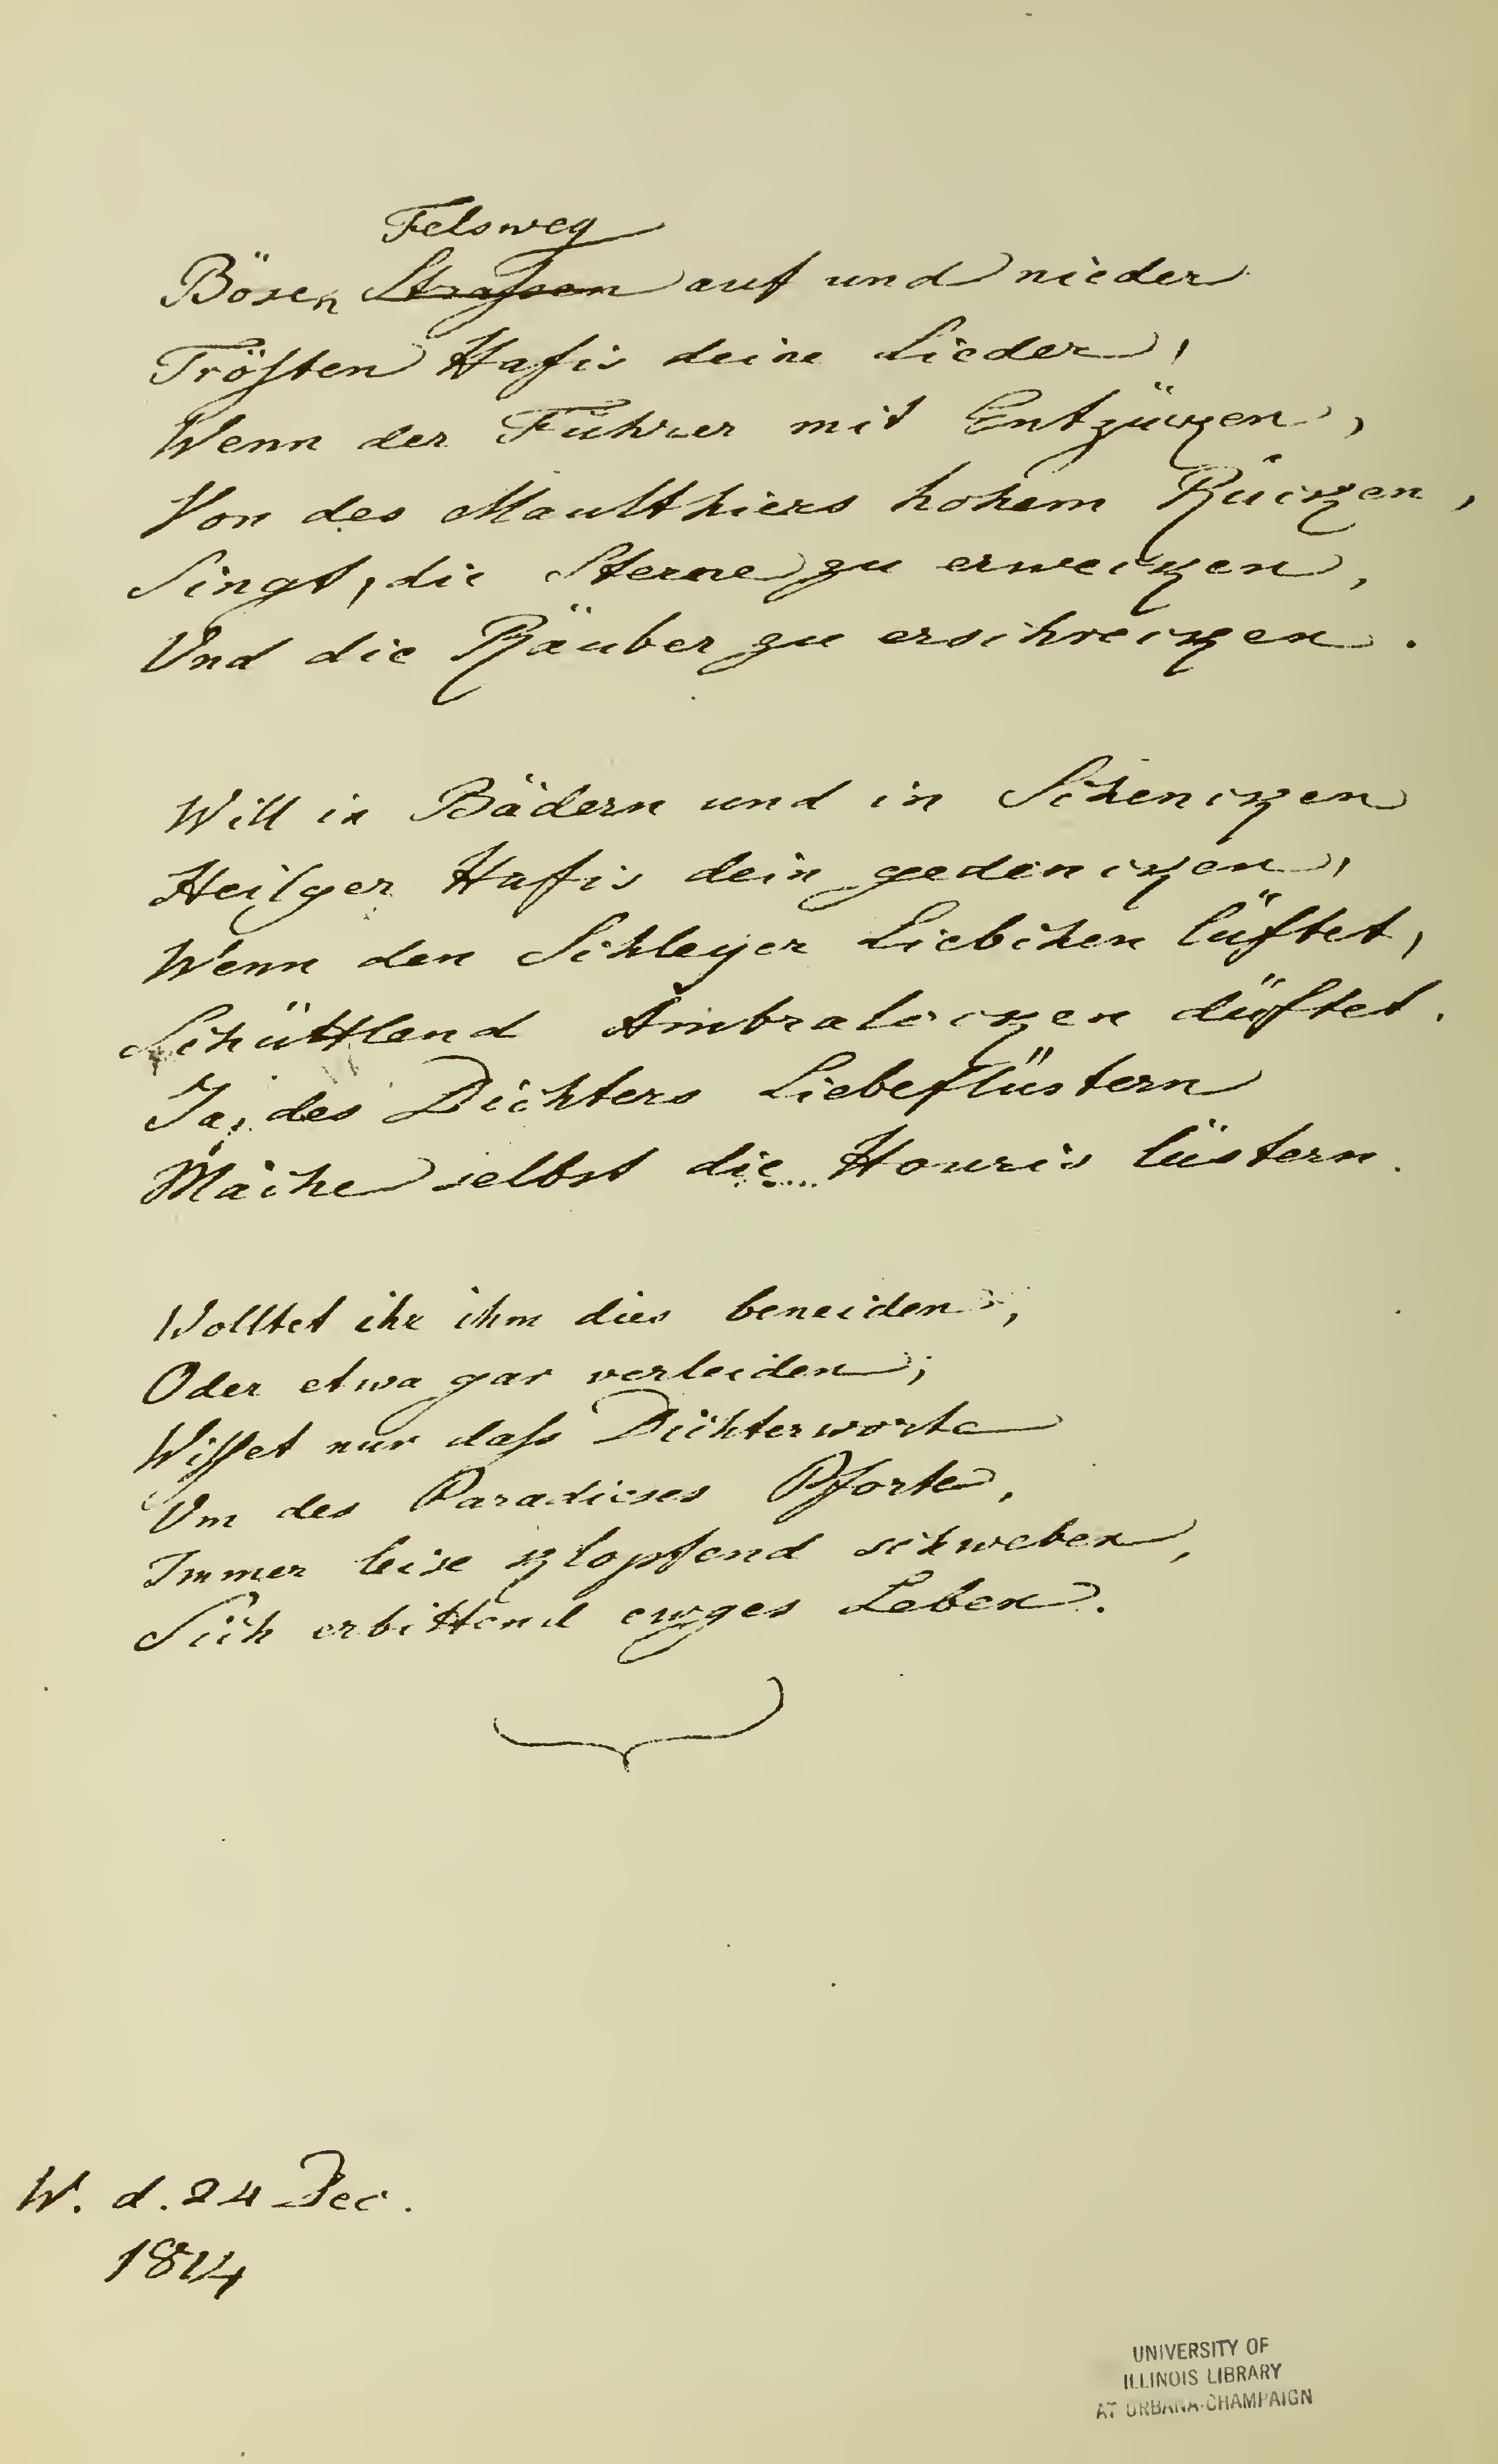 Felsweg
Bösen Strassen auf und nieder
Trösten Hafis deine Lieder,
Wenn der Führer mit Entzücken,
Von des Maulthiers hohem Rücken,
Singt, die Sterne zu erwecken,
Und die Räuber zu erschrecken.
Will in Bädern und in Schencken
Heilger Hafis dein gedencken,
Wenn den Schleyer Liebchen lüftet,
Schüttlend Ambralocken düftet.
Ja, des Dichters Liebeflüstern
Mache selbst die Houris lüstern.
Wolltet ihr ihm dies beneiden,
Oder etwa gar verleiden;
Wisset nur dass Dichterworte
Um des Paradieses Pforte,
Immer leise klopfend schweben,
Sich erbittend ewges Leben.
W. d. 24 Dec.
1814
UNIVERSITY OF
ILLINOIS LIBRARY
AT URBANA-CHAMPAIGN